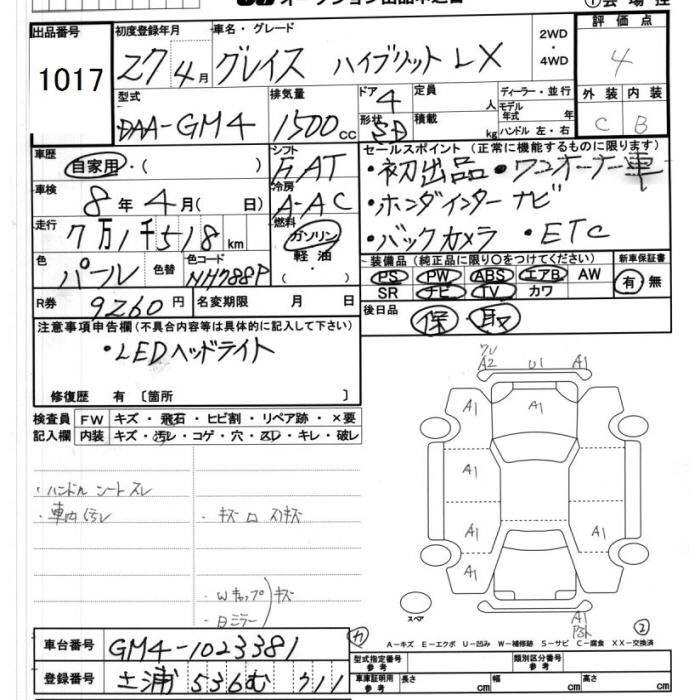 出品番号 初度登録年月 車名・グレード 2WD・4WD 評価点
1017 27年4月 グレイス ハイブリット LX 4
型式 排気量 ドア 4 定員 人 ディーラー・並行 外装 内装
DAA-GM4 1500cc 形状 SD 積載 kg モデル年式 年 ハンドル 左・右 C B
車歴 自家用・( ) シフト FAT セールスポイント (正常に機能するものに限ります)
・初出品 ・ワンオーナー車
車検 8年4月( 日) 冷房 A-AC ・ホンダインターナビ
走行 7万1千518km 燃料 ガソリン 軽油・( ) ・バックカメラ ・ETC
色 パール 色替 色コード NH788P 装備品 (純正品に限り○をつけてください) 新車保証書
PS PW ABS エアB AW 有・無
SR ナビ TV カワ
R券 9260円 名変期限 月 日 後日品 保 取
注意事項申告欄 (不具合内容等は具体的に記入して下さい)
・LEDヘッドライト
修復歴 有 〔箇所 〕
検査員 FW キズ・飛石・ヒビ割・リペア跡・×要
記入欄 内装 キズ・汚レ・コゲ・穴・スレ・キレ・破レ
・ハンドル シート スレ
・車内汚レ
A2 U1 A1
A1 A1 A1
A1
A1 A1
A1
スペア
A-キズ E-エクボ U-凹み W-補修跡 S-サビ C-腐食 XX-交換済
車台番号 GM4-1023381
型式指定番号 参考 類別区分番号 参考
登録番号 土浦 536 む 711
車庫証明用 参考 長さ cm 幅 cm 高さ cm